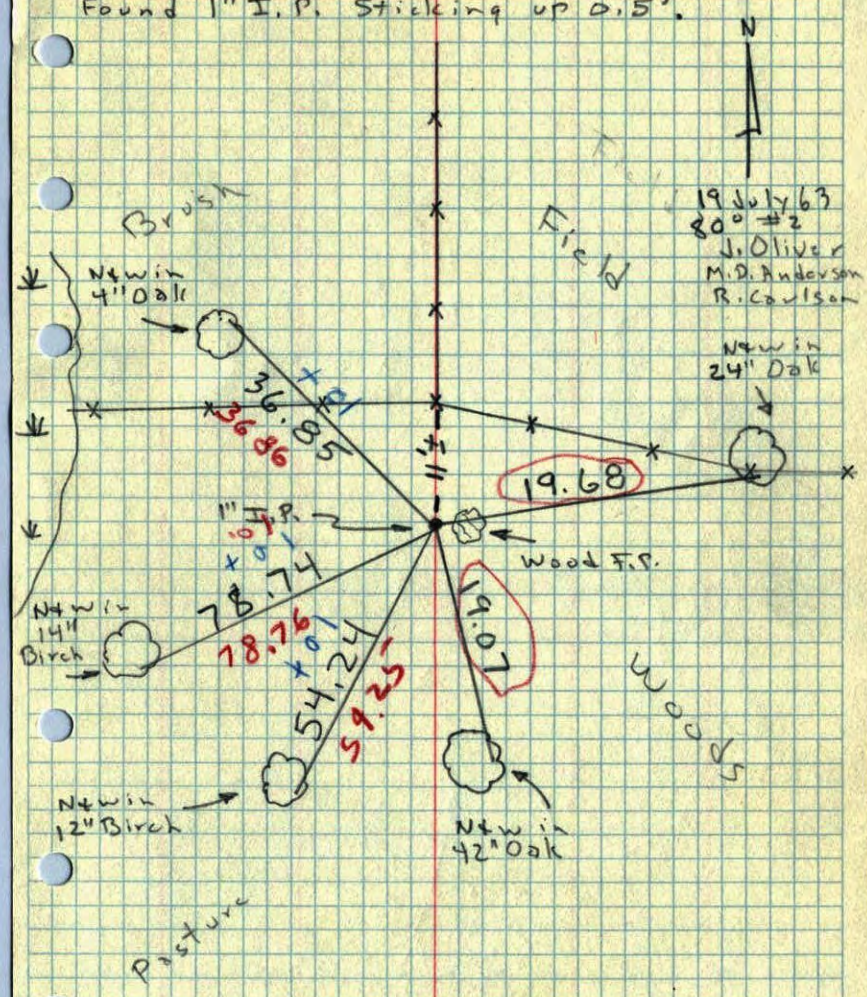 Found 1" I.P. Sticking up 0.5'.
N
Brush
Field
Field
19 July 63
80° #2
J. Oliver
M.D. Anderson
R. Carlson
N&W in
4" Oak
N&W in
24" Oak
+ .01
36.85
36.86
11'±
19.68
1" I.P.
Wood F.P.
.01
+ .01
78.74
78.76
N&W in
14"
Birch
+ .01
54.24
54.25
19.07
Woods
N&W in
12" Birch
N&W in
42" Oak
Pasture